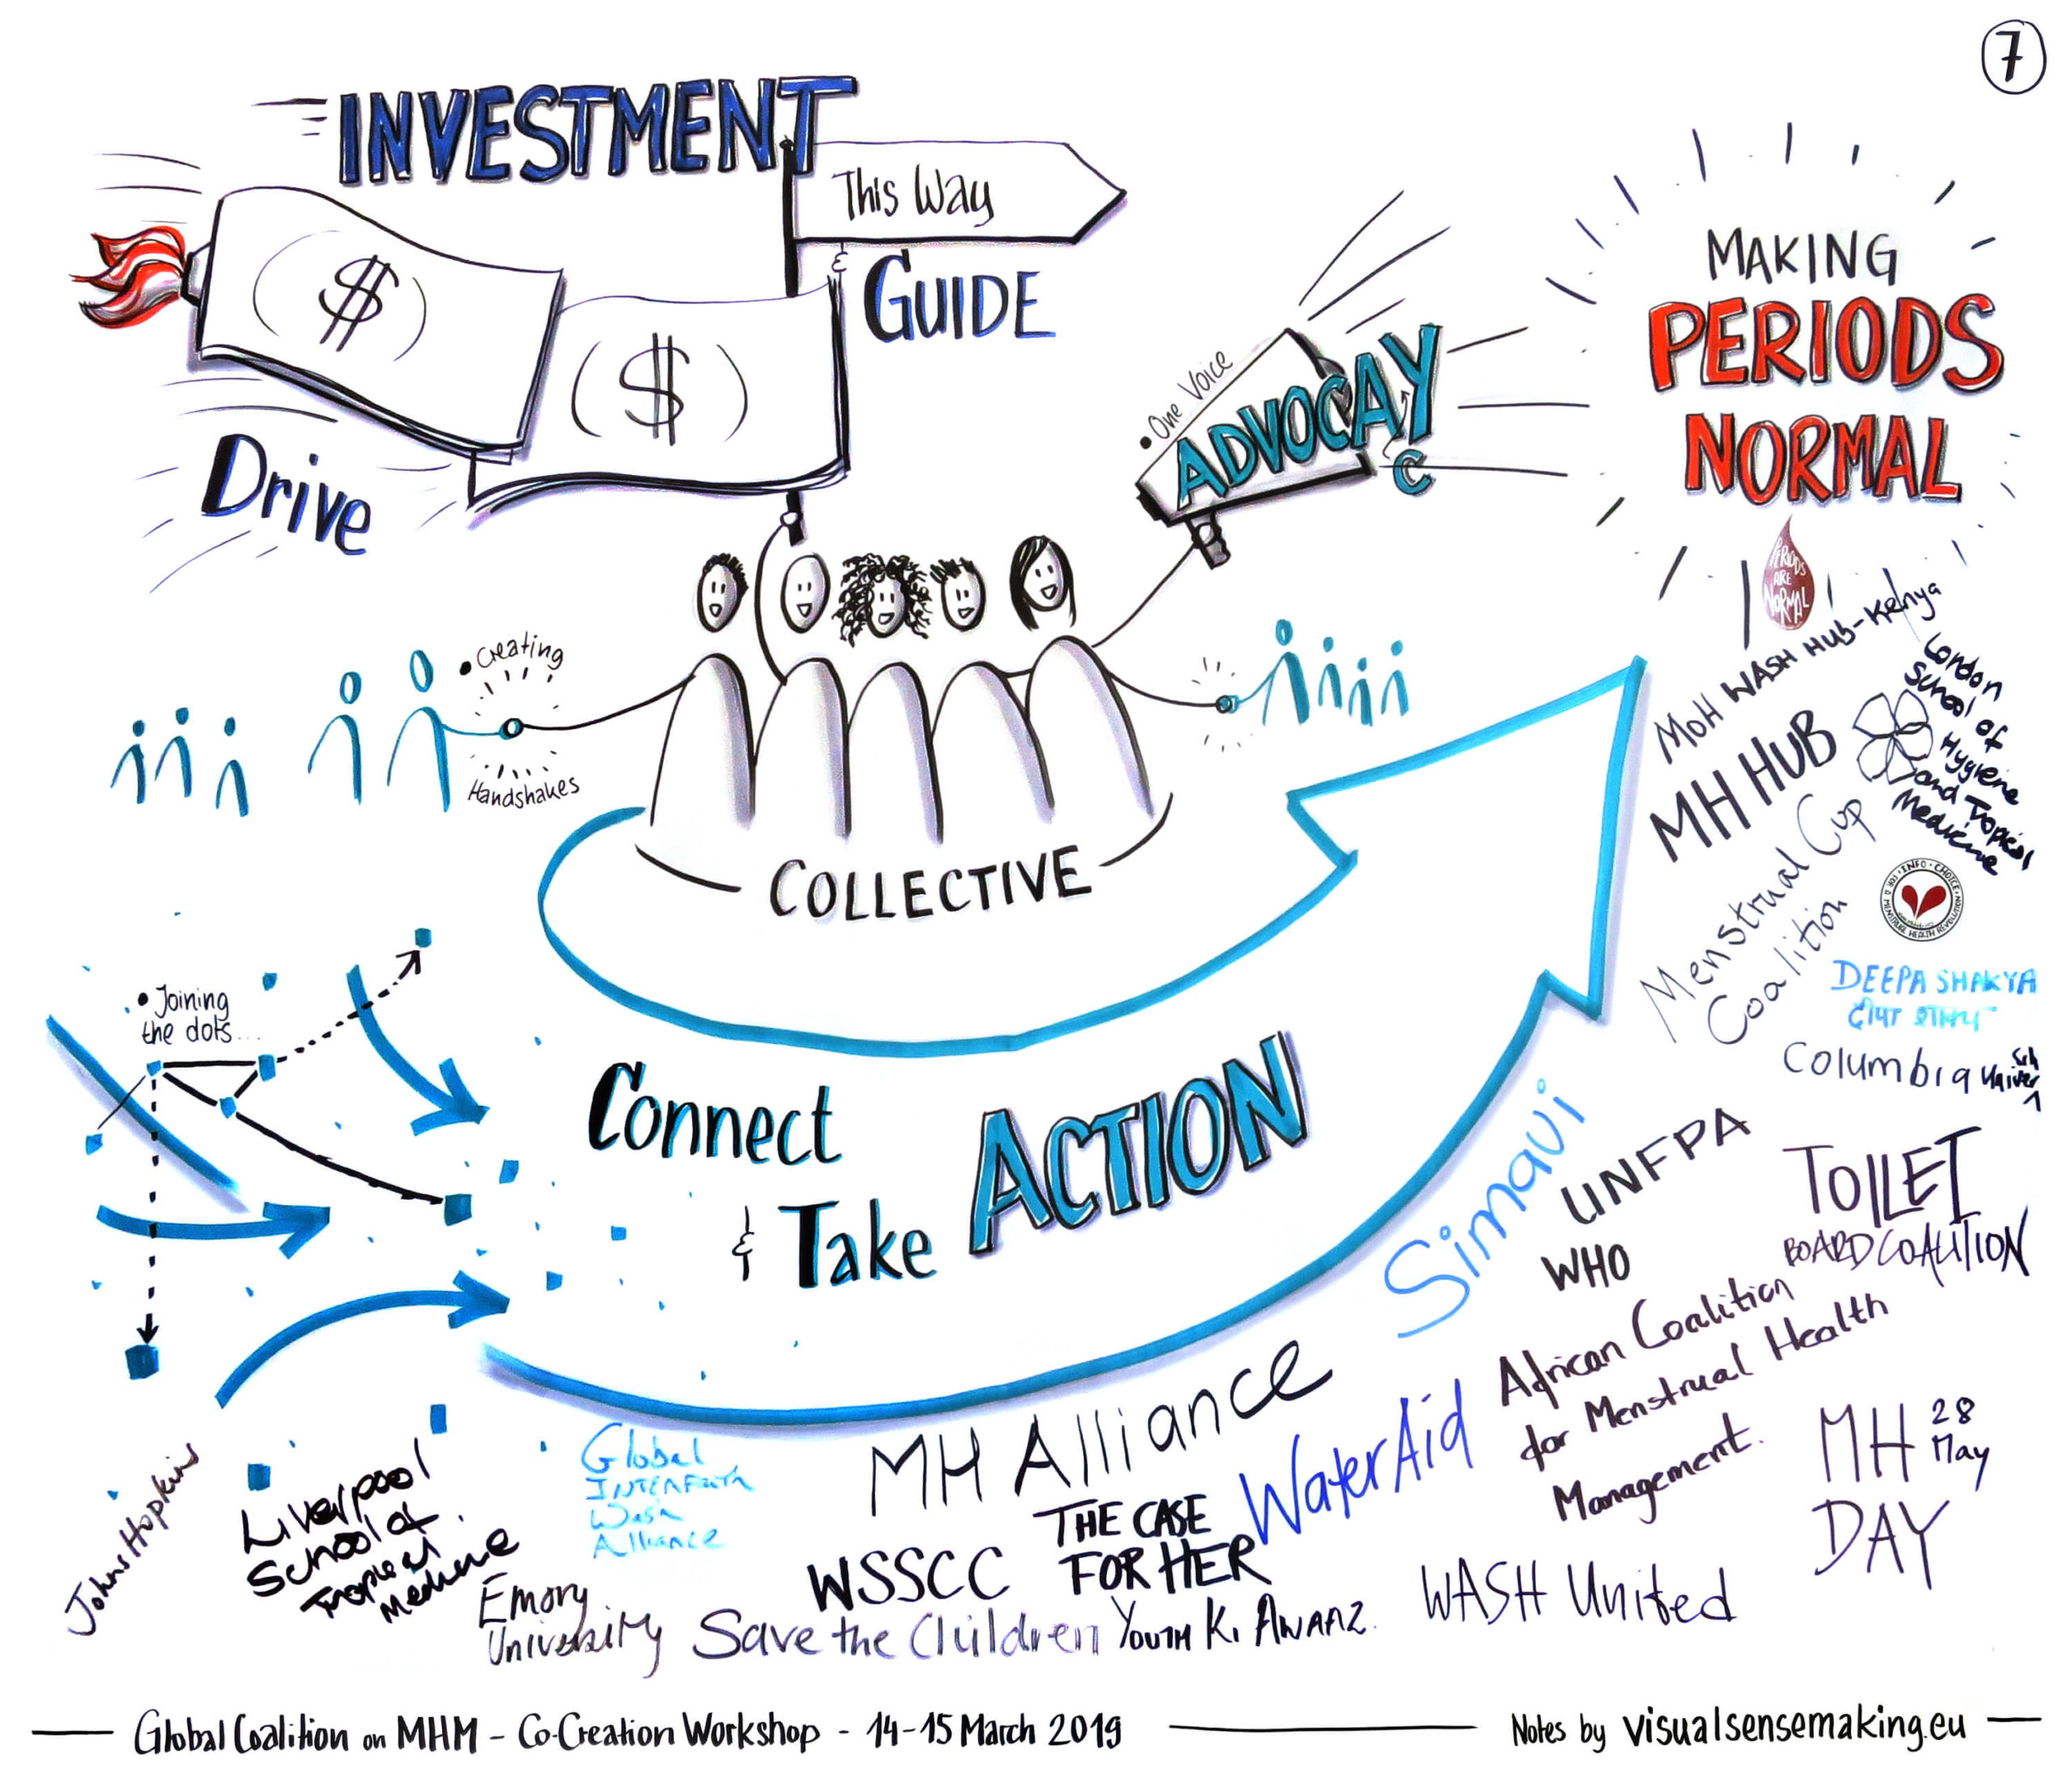 7
INVESTMENT
This Way
&
GUIDE
$
$
Drive
• One Voice
ADVOCAY
C
MAKING
PERIODS
NORMAL
PERIODS
ARE
NORMAL
• Creating
Handshakes
COLLECTIVE
• Joining
the dots...
Connect
& Take ACTION
MoH WASH HUB-Kenya
MH HUB
London
School of
Hygiene
and Tropical
Medicine
Menstrual Cup
Coalition
INFO • CHOICE
FOR A MENSTRUAL HEALTH REVOLUTION
DEEPA SHAKYA
Columbia Univer
Sch
Simavi
UNFPA
WHO
TOILET
BOARD COALITION
African Coalition
for Menstrual Health
Management.
MH 28
May
DAY
MH Alliance
WaterAid
THE CASE
FOR HER
WSSCC
Johns Hopkins
Liverpool
School of
Tropical
Medicine
Global
INTERFAITH
Wash
Alliance
Emory
University
Save the Children
YOUTH Ki AWAAZ.
WASH United
Global Coalition on MHM - Co-Creation Workshop - 14-15 March 2019
Notes by visualsensemaking.eu